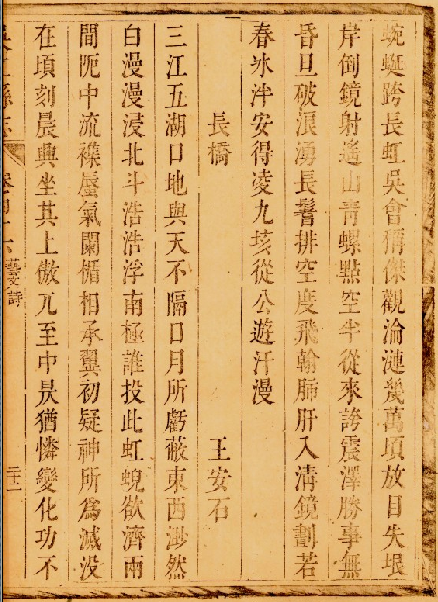 蜿蜒跨長虹吳會稱傑觀淪漣幾萬頃放目失垠
岸倒鏡射遙山青螺點空半從來誇震澤勝事無
昏旦破浪湧長鬐排空度飛翰肺肝入清鏡劃若
春冰泮安得凌九垓從公遊汗漫
長橋 王安石
三江五湖口地與天不隔日月所虧蔽東西渺然
白漫漫浸北斗浩浩浮南極誰投此虹蜺欲濟兩
間阨中流襍蜃氣闌楯相承翼初疑神所為滅沒
在頃刻晨興坐其上傲兀至中昃猶憐變化功不
藝文詩